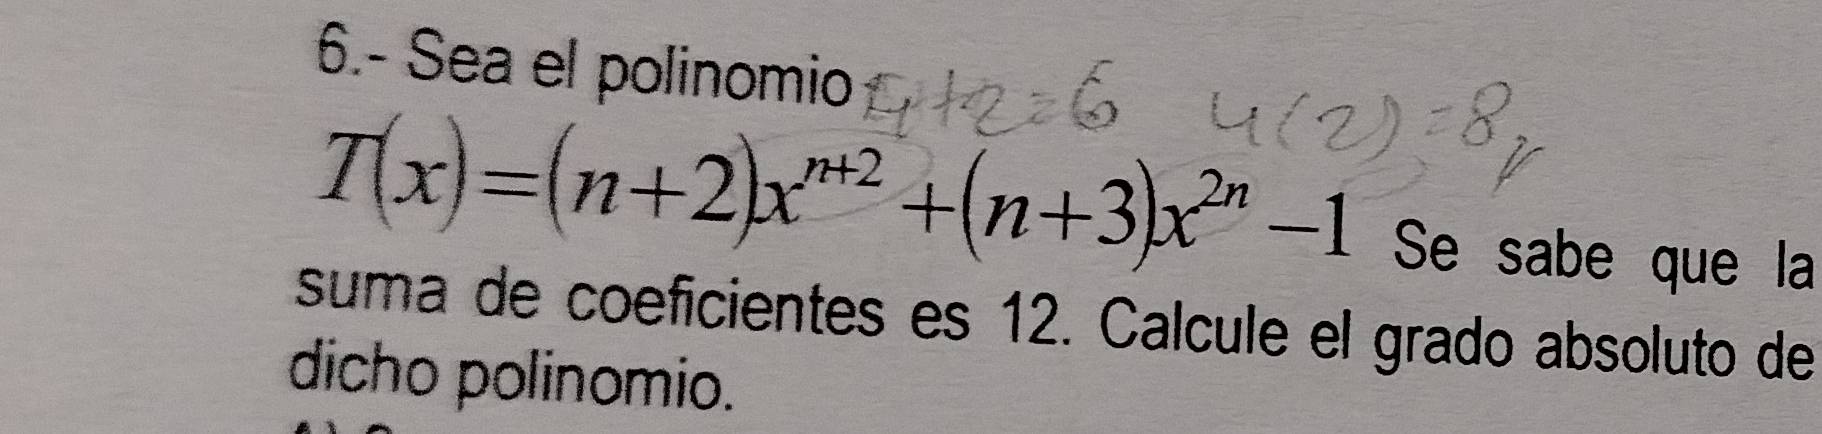 6.- Sea el polinomio 4+2=6 4(2)=8
T(x)=(n+2)x^{n+2}+(n+3)x^{2n}-1 Se sabe que la
suma de coeficientes es 12. Calcule el grado absoluto de
dicho polinomio.